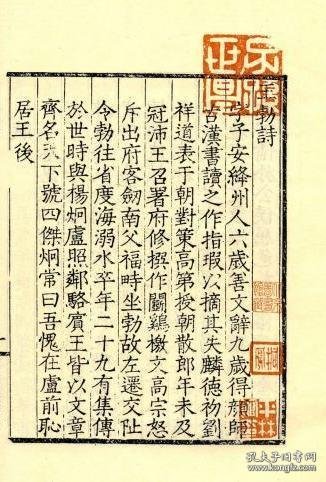 王勃詩
字子安絳州人六歲善文辭九歲得顏師
古漢書讀之作指瑕以摘其失麟德初劉
祥道表于朝對策高第授朝散郎年未及
冠沛王召署府修撰作鬪鷄檄文高宗怒
斥出府客劍南父福時坐勃故左遷交阯
令勃往省度海溺水卒年二十九有集傳
於世時與楊炯盧照鄰駱賓王皆以文章
齊名天下號四傑炯常曰吾愧在盧前恥
居王後
孔夫子旧书网